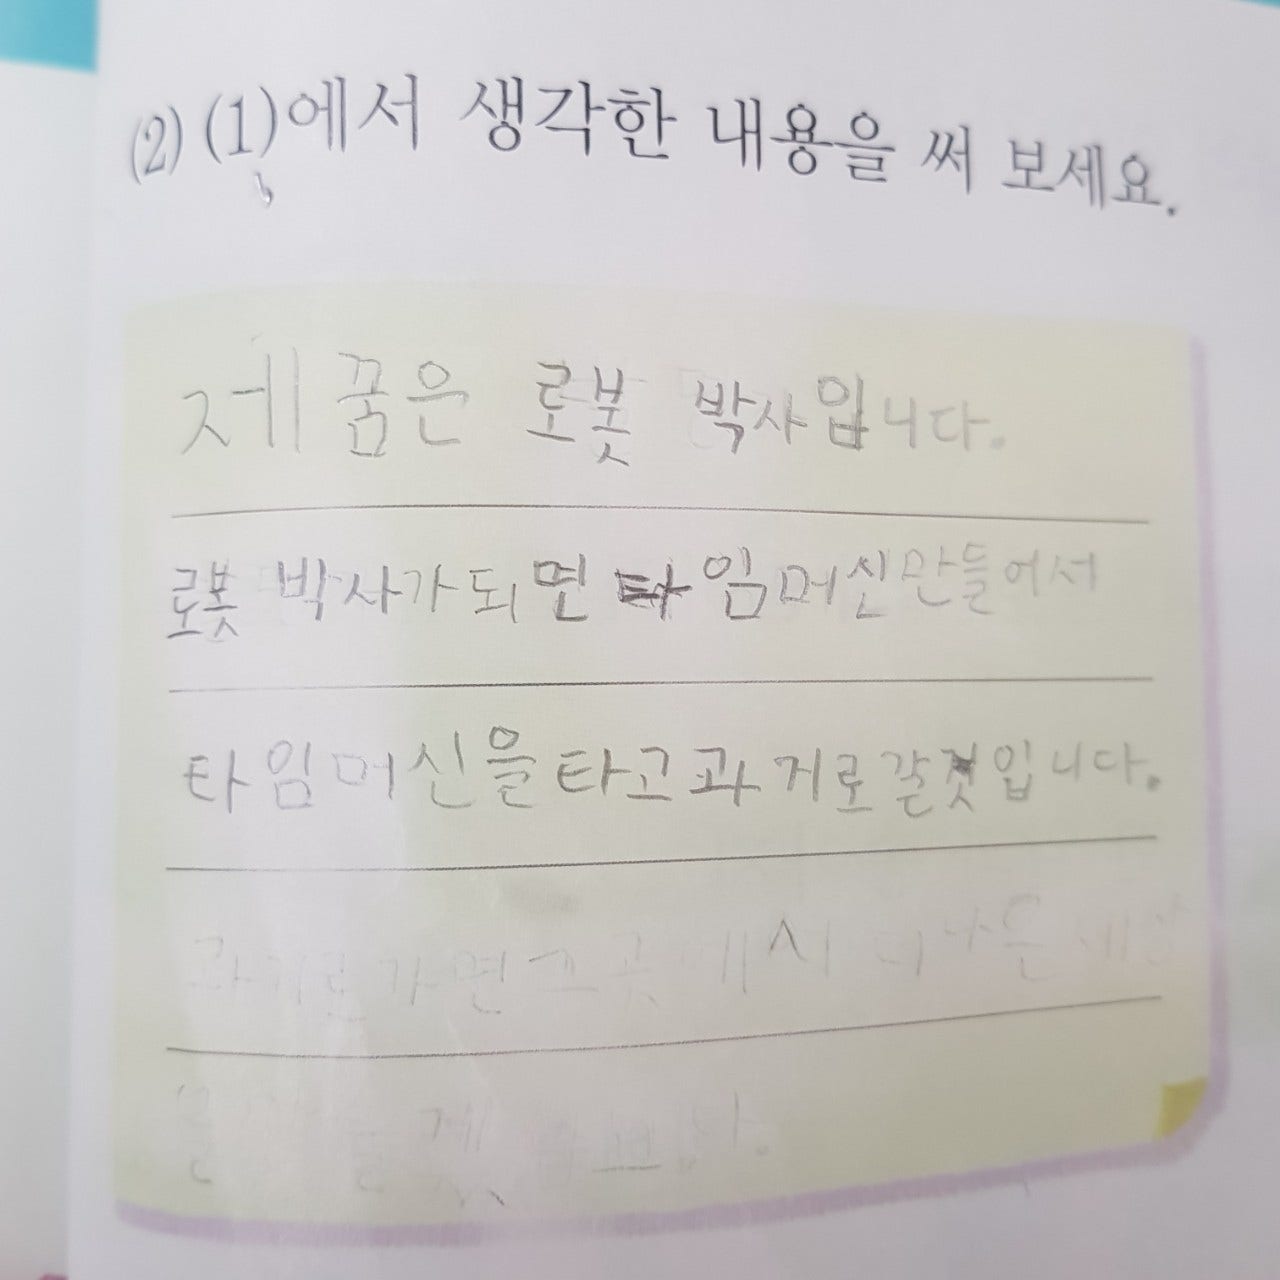 (2) (1)에서 생각한 내용을 써 보세요.
제 꿈은 로봇 박사입니다.
로봇 박사가되면 타임머신만들어서
타임머신을타고과거로갈것입니다.
과거로가면그곳에서 더나은